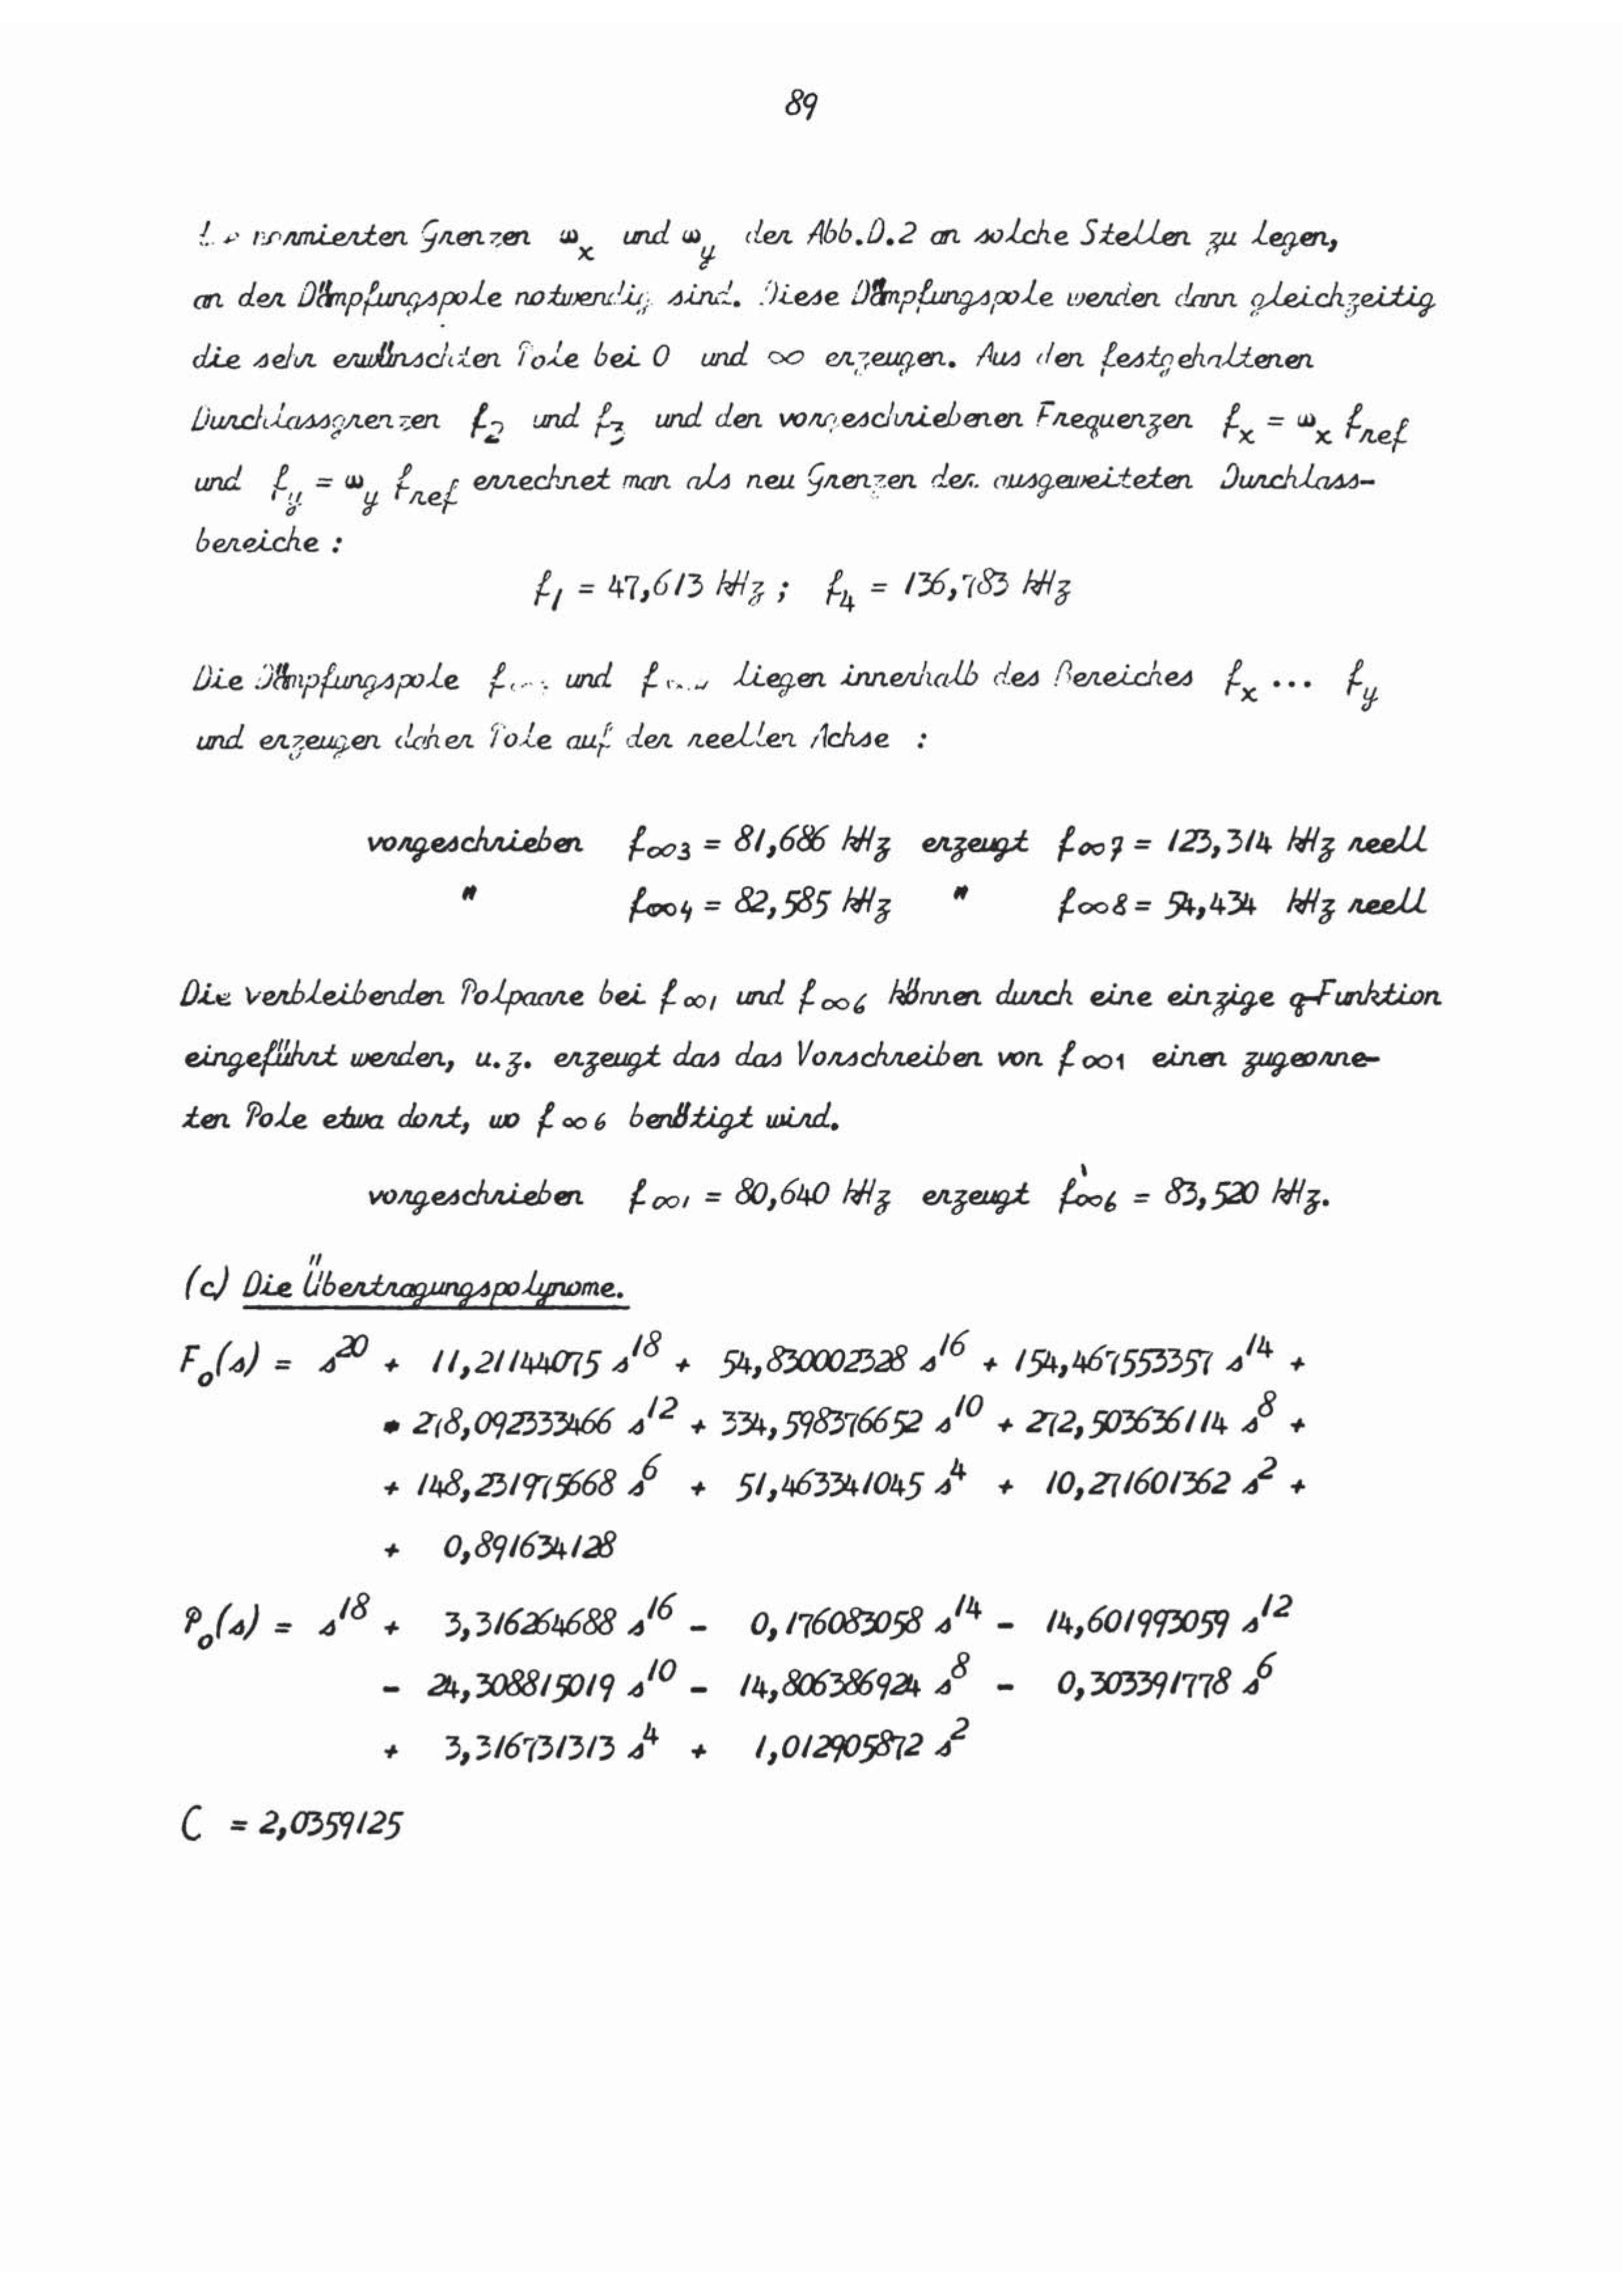 89
normierten Grenzen ωx und ωy der Abb.D.2 an solche Stellen zu legen,
an der Dämpfungspole notwendig sind. Diese Dämpfungspole werden dann gleichzeitig
die sehr erwünschten Pole bei 0 und ∞ erzeugen. Aus den festgehaltenen
Durchlassgrenzen f2 und f3 und den vorgeschriebenen Frequenzen fx = ωx fref
und fy = ωy fref errechnet man als neu Grenzen der ausgeweiteten Durchlass-
bereiche :
f1 = 47,613 kHz ; f4 = 136,783 kHz
Die Dämpfungspole und liegen innerhalb des Bereiches fx ... fy
und erzeugen daher Pole auf der reellen Achse :
vorgeschrieben f∞3 = 81,686 kHz erzeugt f∞7 = 123,314 kHz reell
" f∞4 = 82,585 kHz " f∞8 = 54,434 kHz reell
Die verbleibenden Polpaare bei f∞1 und f∞6 können durch eine einzige q-Funktion
eingeführt werden, u.z. erzeugt das das Vorschreiben von f∞1 einen zugeorne-
ten Pole etwa dort, wo f∞6 benötigt wird.
vorgeschrieben f∞1 = 80,640 kHz erzeugt f∞6 = 83,520 kHz.
(c) Die Übertragungspolynome.
F₀(s) = s^20 + 11,21144075 s^18 + 54,830002328 s^16 + 154,467553357 s^14 +
+ 278,092333466 s^12 + 334,598376652 s^10 + 272,503636114 s^8 +
+ 148,231975668 s^6 + 51,463341045 s^4 + 10,271601362 s^2 +
+ 0,891634128
P₀(s) = s^18 + 3,316264688 s^16 - 0,176083058 s^14 - 14,601993059 s^12
- 24,308815019 s^10 - 14,806386924 s^8 - 0,303391778 s^6
+ 3,316731313 s^4 + 1,012905872 s^2
C = 2,0359125